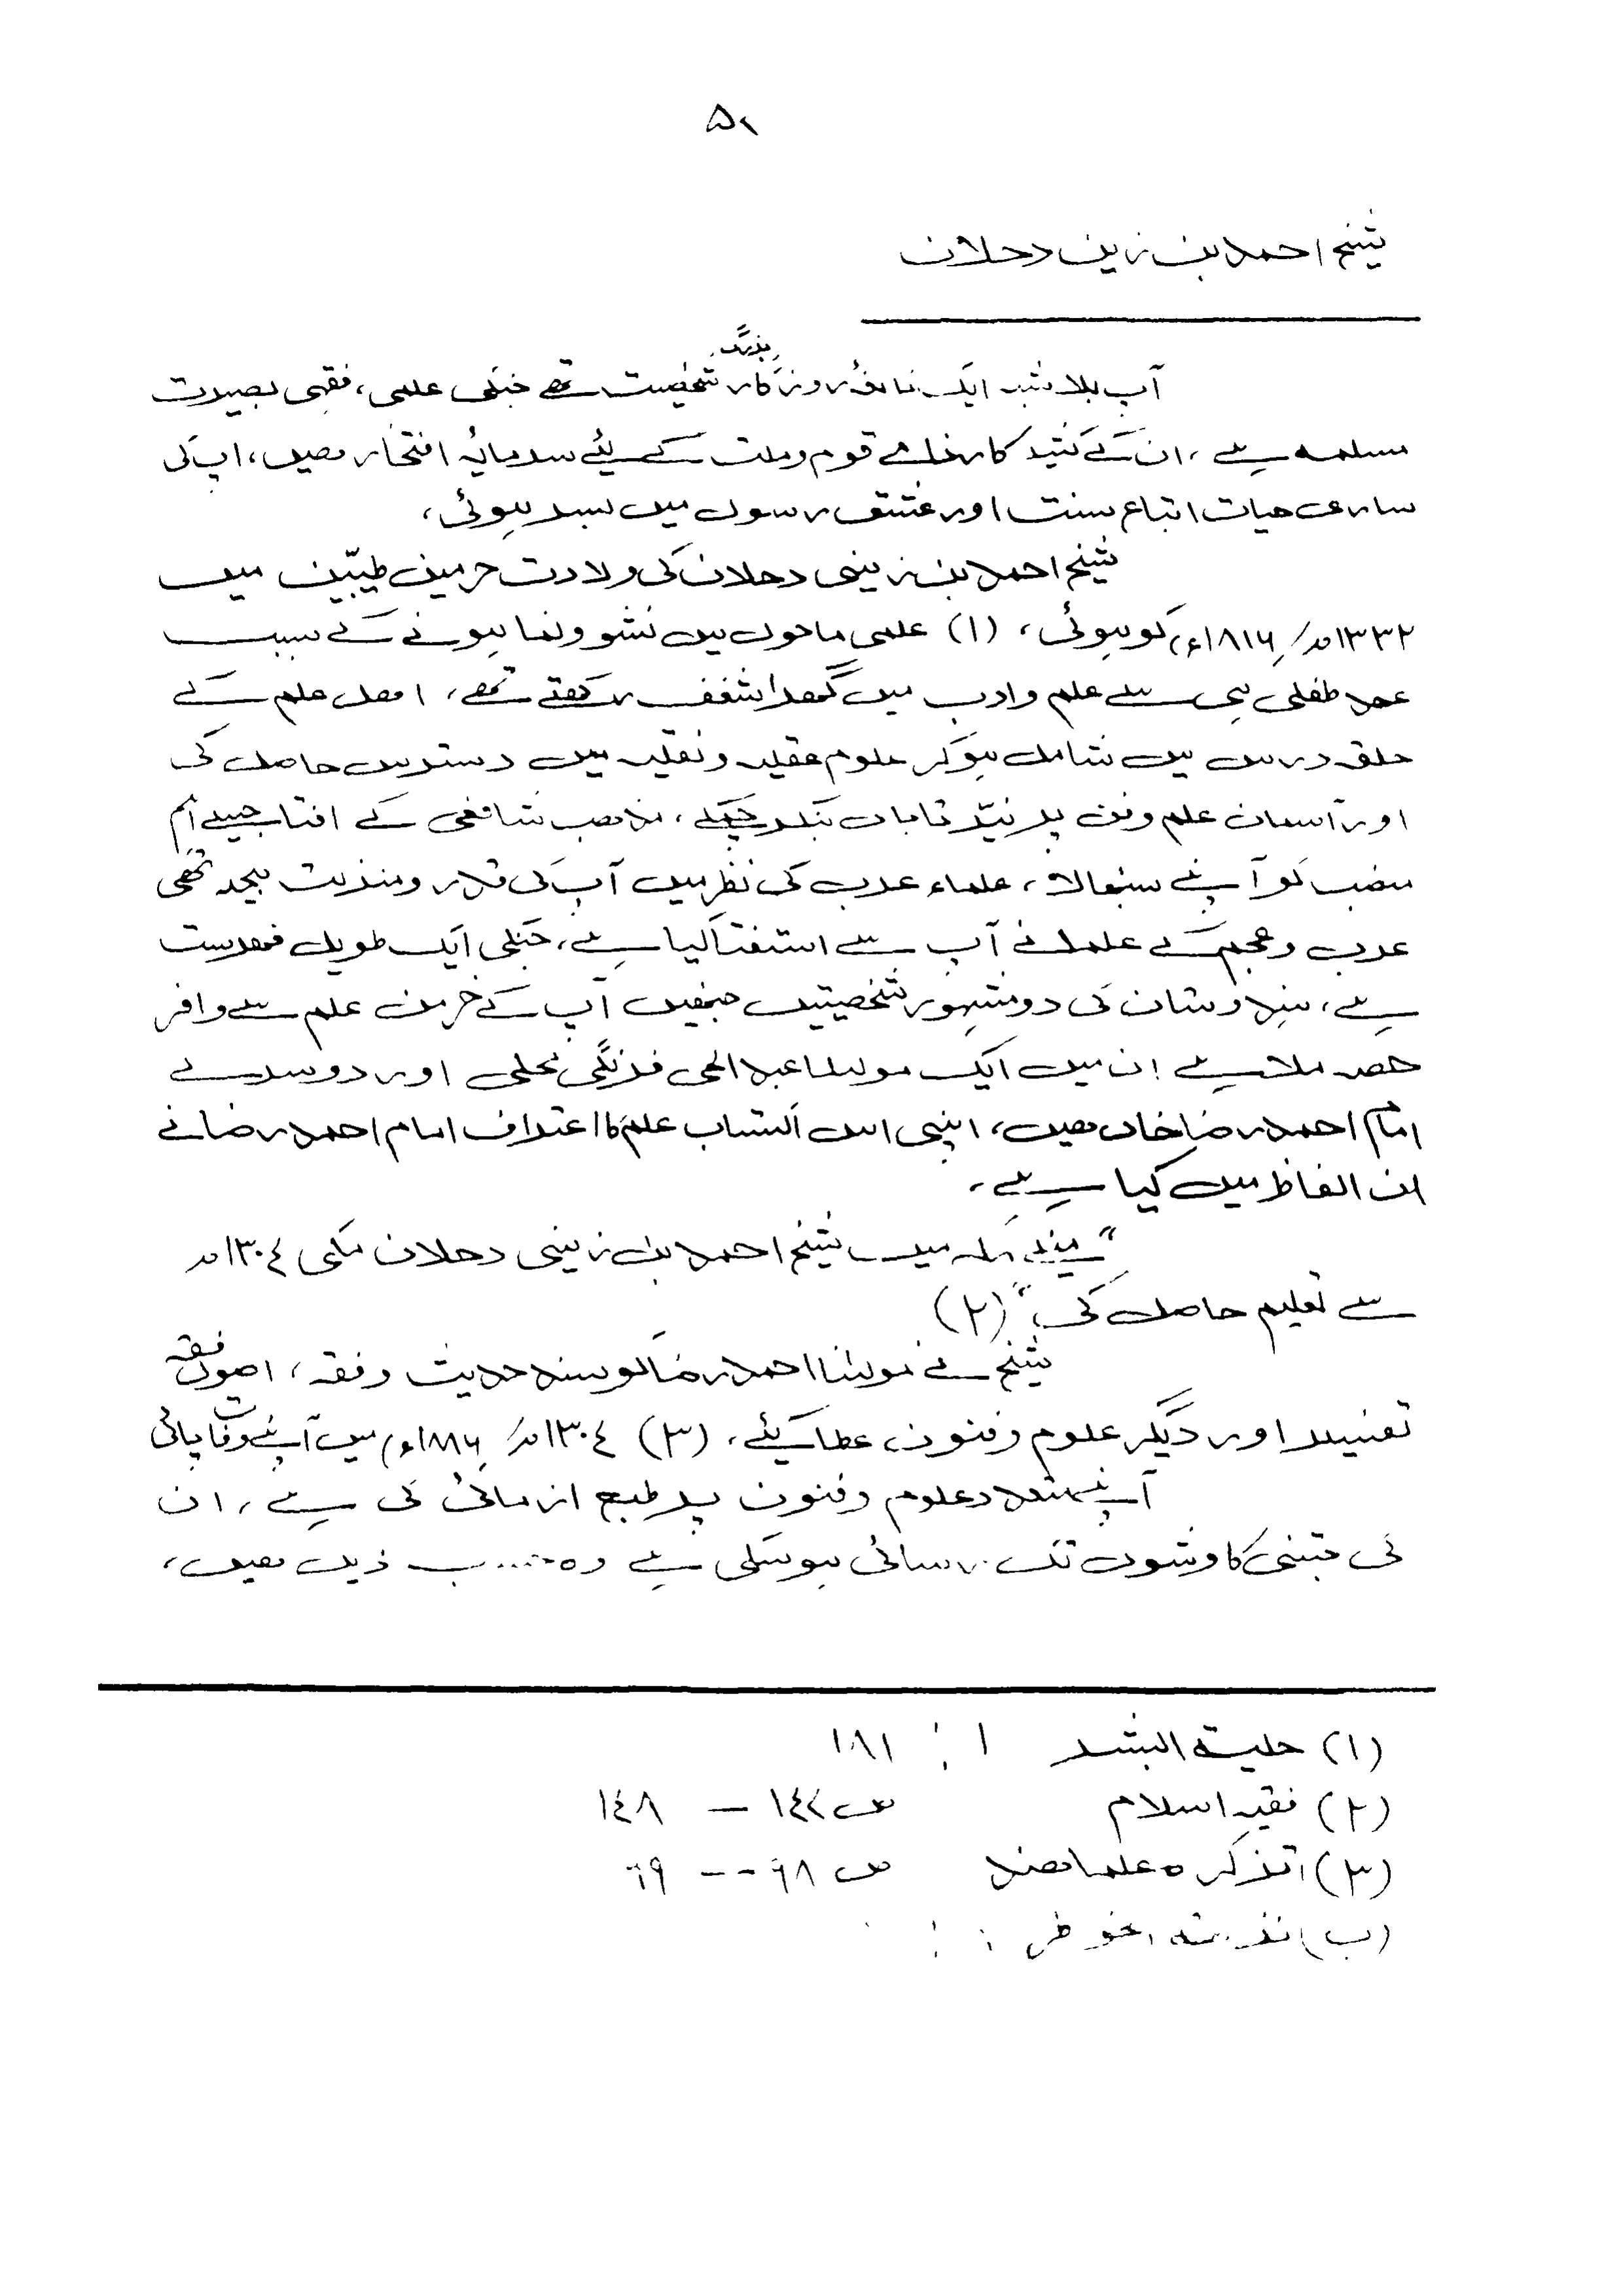 ۵۱
شیخ احمد بن زین دحلان
بزرگ
آپ بلا شبہ ایک نابغۂ روزگار شخصیت تھے جنکی علمی، فقہی بصیرت
مسلمہ ہے، ان کے کارنامے قوم و ملت کے لیئے سرمایۂ افتخار ھیں، اپ کی
ساری حیات اتباع سنت اور عشق رسول میں بسر ہوئی،
شیخ احمد بن زینی دحلان کی ولادت حرمین طیّبین میں
۱۳۳۲ھ/ ۱۸۱۶ء کو ہوئی، (۱) علمی ماحول میں نشو و نما ہونے کے سبب
عہد طفلی ہی سے علم و ادب میں گہرا شغف رکھتے تھے، اھل علم کے
حلقہ درس میں شامل ہو کر علوم عقلیہ و نقلیہ میں دسترس حاصل کی
اور آسمان علم و فن پر نیّر تاباں بنکر چمکے، مذھب شافعی کے افتا جیسے اہم
منصب کو آپنے سنبھالا، علماء عرب کی نظر میں آپ کی قدر و منزلت بیحد تھی
عرب و عجم کے علما نے آپ سے استفتا کیا ہے، جنکی ایک طویل فہرست
ہے، ہندوستان کی دو مشہور شخصیتیں جنھیں آپ کے خرمن علم سے وافر
حصہ ملا ہے ان میں ایک مولانا عبد الحی فرنگی محلی اور دوسرے
امام احمد رضا خاں ھیں، اپنی اس اکتساب علم کا اعتراف امام احمد رضا نے
ان الفاظ میں کیا ہے۔
میں شیخ احمد بن زینی دحلان مکی ۱۳۰٤ھ
سے تعلیم حاصل کی،" (۲)
شیخ نے مولانا احمد رضا کو سند حدیث و فقہ، اصول فقہ
تفسیر اور دیگر علوم و فنون عطا کیئے، (۳) ۱۳۰٤ھ/ ۱۸۸۶ء میں آپنے وفات پائی
آپنے متعدد علوم و فنون پر طبع ازمائی کی ہے، ان
کی جتنی کاوشوں تک رسائی ہو سکی ہے وہ ذیل ھیں،
(۱) حلیۃ البشر ۱: ۱۸۱
(۲) فقیہ اسلام ص ۱٤۷ – ۱٤۸
(۳) ا تذکرہ علما ھند ص ۶۸ -- ٦۹
(ب) نزہتہ الخواطر :